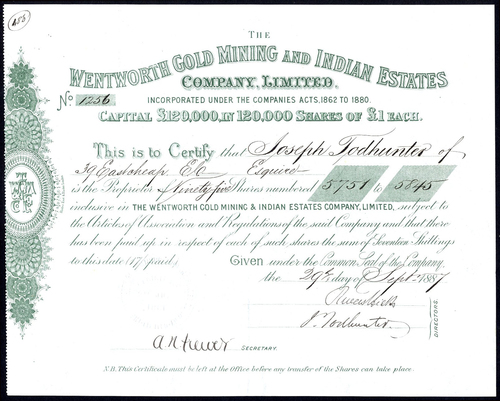 488
THE
WENTWORTH GOLD MINING AND INDIAN ESTATES
COMPANY, LIMITED.
No 1256
INCORPORATED UNDER THE COMPANIES ACTS, 1862 TO 1880.
CAPITAL £120,000, IN 120,000 SHARES OF £1 EACH.
This is to Certify that Joseph Todhunter of
39 Eastcheap E.C. Esquire
is the Proprietor of Ninety five Shares numbered 5751 to 5845
inclusive in THE WENTWORTH GOLD MINING & INDIAN ESTATES COMPANY, LIMITED, subject to
the Articles of Association and Regulations of the said Company and that there
has been paid up in respect of each of such shares the sum of Seventeen Shillings
to this date (17/ paid).
Given under the Common Seal of the Company,
the 29th day of Sept 1887
J. Todhunter
DIRECTORS.
SECRETARY.
N.B. This Certificate must be left at the Office before any transfer of the Shares can take place.